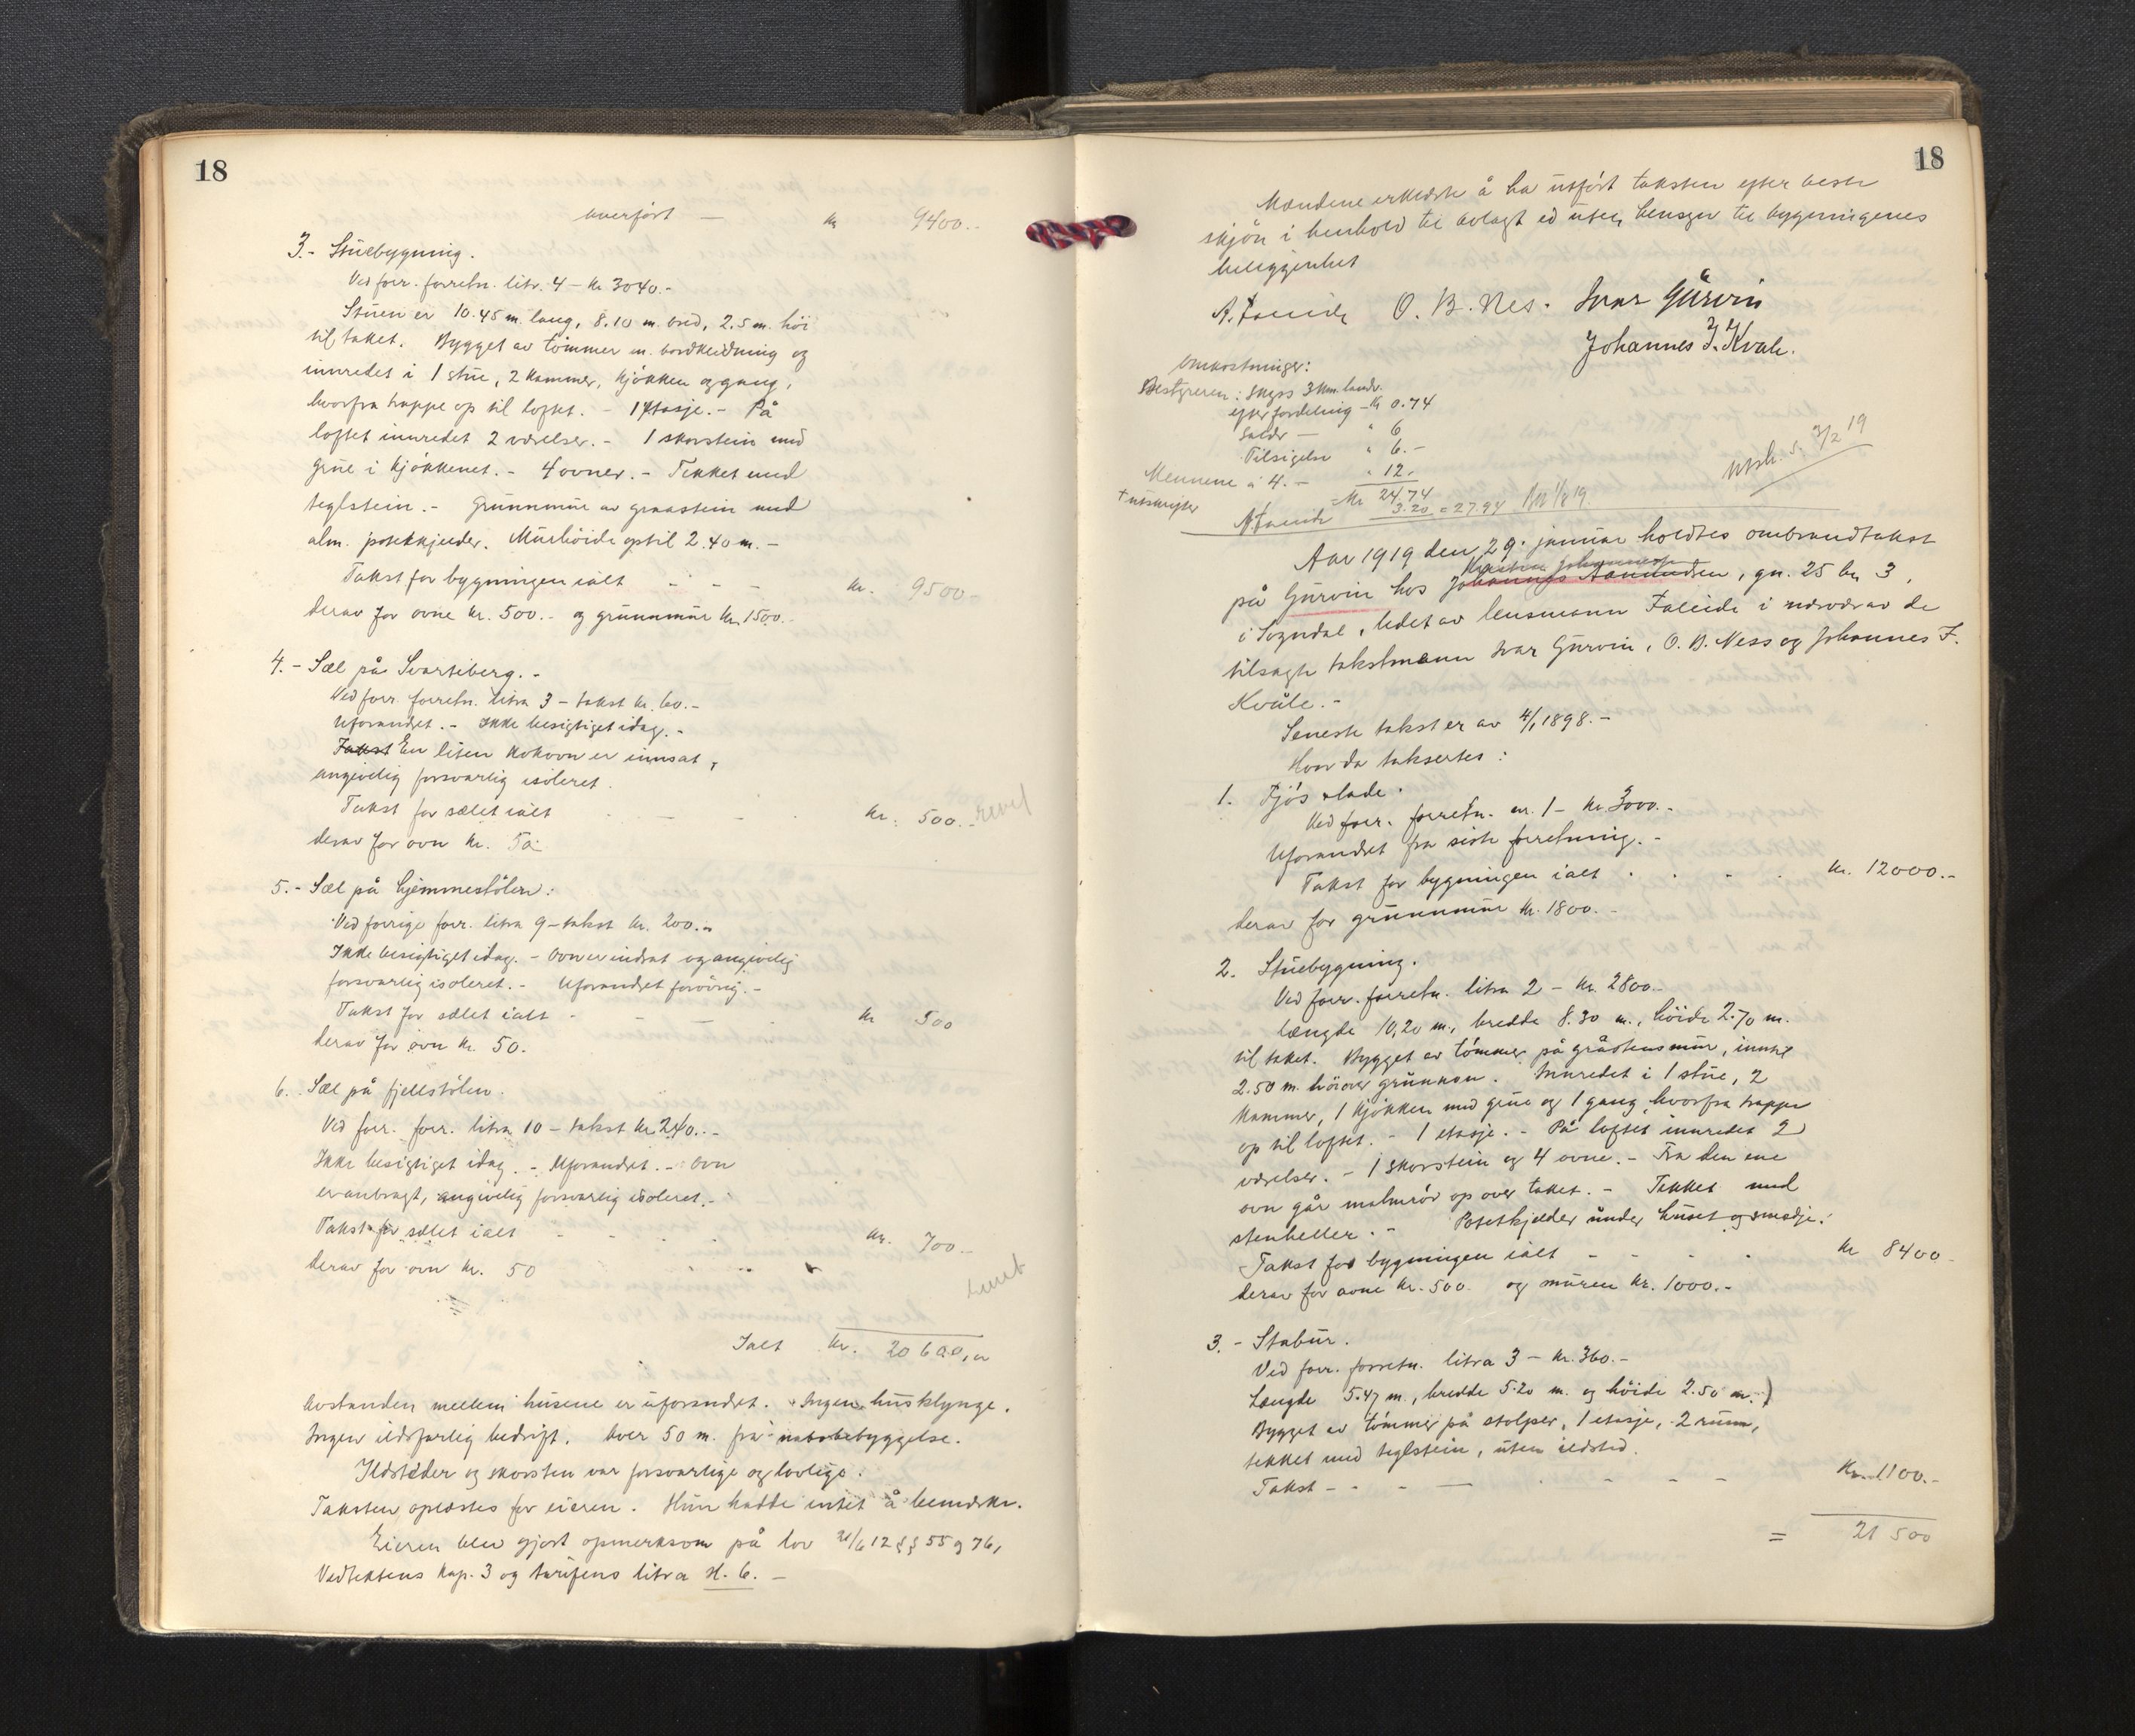 18
overført — kr 9400.-
3.- Stuebygning.
Ved forr. forretn. litr. 4 - kr 3040.-
Stuen er 10.45 m. lang, 8.10 m. bred, 2.5 m. høi
til taket. Bygget av tømmer m. bordkledning og
innredet i 1 stue, 2 kammer, kjøkken og gang,
hvorfra trappe op til loftet. - 1 etasje. - På
loftet innredet 2 værelser. - 1 skorstein med
grue i kjøkkenet. - 4 ovner. - Tekket med
teglstein. - Grunnmur av graastein med
alm. potetkjelder. Murhøide optil 2.40 m. -
Takst for bygningen ialt - - - kr. 9500.-
derav for ovne kr. 500.- og grunnmur kr. 1500.-
4.- Sæl på Svartiberg. -
Ved forr. forretn. litra 3 - takst kr. 60.-
Uforandret. - Ikke besigtiget idag. -
Takst En liten kokovn er innsat,
angivelig forsvarlig isoleret.
Takst for sælet ialt - - - kr. 500.-
derav for ovn kr. 50.-
5.- Sæl på hjemmestølen:
Ved forrige forr. litra 9 - takst kr. 200.-
Ikke besigtiget idag. - Ovn er indsat og angivelig
forsvarlig isoleret. - Uforandret forøvrig. -
Takst for sælet ialt - - - kr 500
derav for ovn kr. 50.
6. Sæl på fjellstølen.
Ved forr. forr. litra 10 - takst kr. 240.-
Ikke besigtiget idag. - Uforandret. - Ovn
er anbragt, angivelig forsvarlig isoleret. -
Takst for sælet ialt - - - kr. 700.-
derav for ovn kr. 50
Ialt kr. 20600,-
Avstanden mellem husene er uforandret. Ingen husklynge.
Ingen ildsfarlig bedrift. Over 50 m. fra nabobebyggelse.
Ildsteder og skorsten var forsvarlige og lovlige.
Taksten oplæstes for eieren. Hun hadde intet å bemerke.
Eieren blev gjort opmerksom på lov 21/6 12 §§ 55 og 76,
Vedtektens kap. 3 og tarifens litra H. 6. -
18
Mændene erklærte å ha utført taksten efter beste
skjøn i henhold til avlagt ed uten hensyn til bygningenes
beliggenhet
A. Faleide O. B. Nes. Ivar Gurvin
Johannes J. Kvale.
Omkostninger:
Bestyreren: Skyss 3 km. landv.
efter fordeling - kr 0.74
Salær — " 6
Tilsigelse " 6.-
Mennene à 4. - " 12.
+ utskrifter = kr 24.74
A. Faleide 3.20 = 27.94
utsk. s. 3/2 19
Aar 1919 den 29. januar holdtes ombrandtakst
Kristen Johannessen
på Gurvin hos Johannes Aamundsen, gn. 25 bn 3,
i Sogndal, ledet av lensmann Faleide i nærvær av de
tilsagte takstmenn Ivar Gurvin, O. B. Ness og Johannes J.
Kvåle. -
Seneste takst er av 4/1 1898. -
Hvor da taksertes:
1. Fjøs & lade.
Ved forr. forretn. nr. 1 - kr. 3000.-
Uforandret fra siste forretning. -
Takst for bygningen ialt - - - kr. 12000.-
derav for grunnmur kr. 1800.-
2. Stuebygning.
Ved forr. forretn. litra 2 - kr. 2800.-
Længde 10,20 m., bredde 8.30 m., høide 2.70 m.
til taket. Bygget av tømmer på gråstensmur, inntil
2.50 m. høi over grunnen. Innredet i 1 stue, 2
kammer, 1 kjøkken med grue og 1 gang, hvorfra trappe
op til loftet. - 1 etasje. - På loftet innredet 2
værelser. - 1 skorstein og 4 ovne. - Fra den ene
ovn går malmrør op over taket. - Tekket med
stenheller. - Potetkjelder under huset og smedje.
Takst for bygningen ialt - - - kr 8400
derav for ovne kr. 500 og muren kr. 1000.-
3.- Stabur.
Ved forr. forretn. litra 3 - kr. 360.-
Længde 5.47 m., bredde 5.20 m. og høide 2.50 m.
Bygget av tømmer på stolper, 1 etasje, 2 rum,
tekket med teglstein, uten ildsted.
Takst - - - — - - - kr. 1100.-
= 21 500